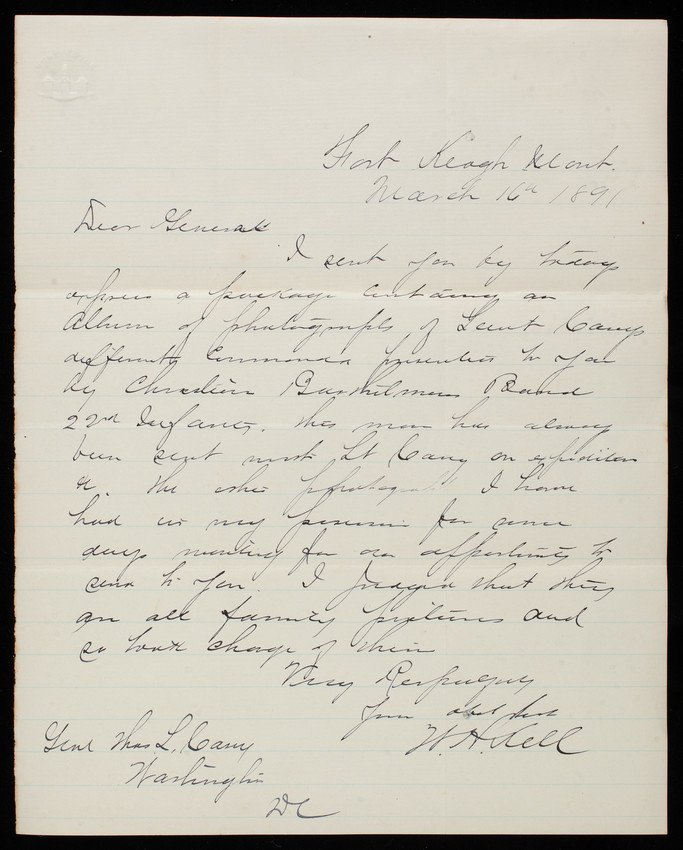 Fort Keogh Mont.
March 16th 1891
Dear General
I sent you by todays
express a package containing an
Album of photographs of Lieut Caseys
different Commands presented to you
by Christian Band
22nd Infantry. This man has always
been sent with Lt Casey on expeditions
&c. The other photographs I have
had in my possession for some
days waiting for an opportunity to
send to you. I judged that they
are all family pictures and
so took charge of them
Very Respectfully
Your obdt servt
W. H. Kell
Genl Thos. L. Casey
Washington
DC